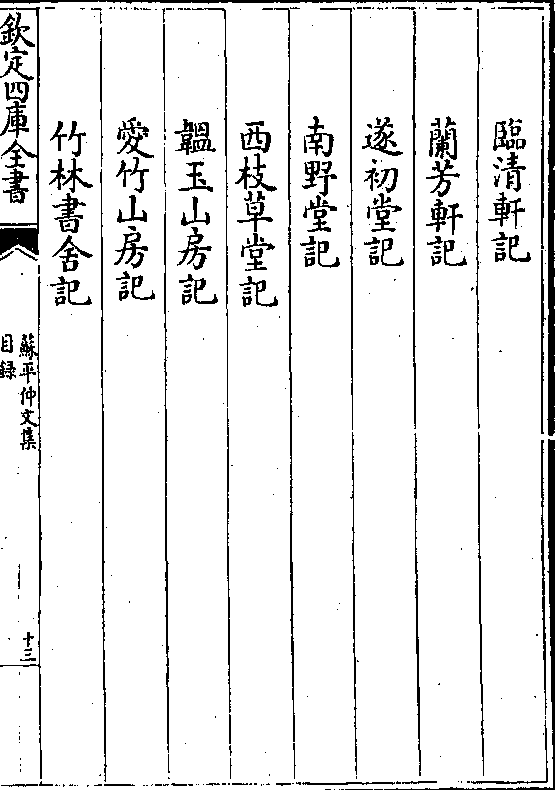 臨清軒記
蘭芳軒記
遂初堂記
南野堂記
西枝草堂記
韞玉山房記
愛竹山房記
竹林書舍記
欽定四庫全書
蘇平仲文集
目録
十三